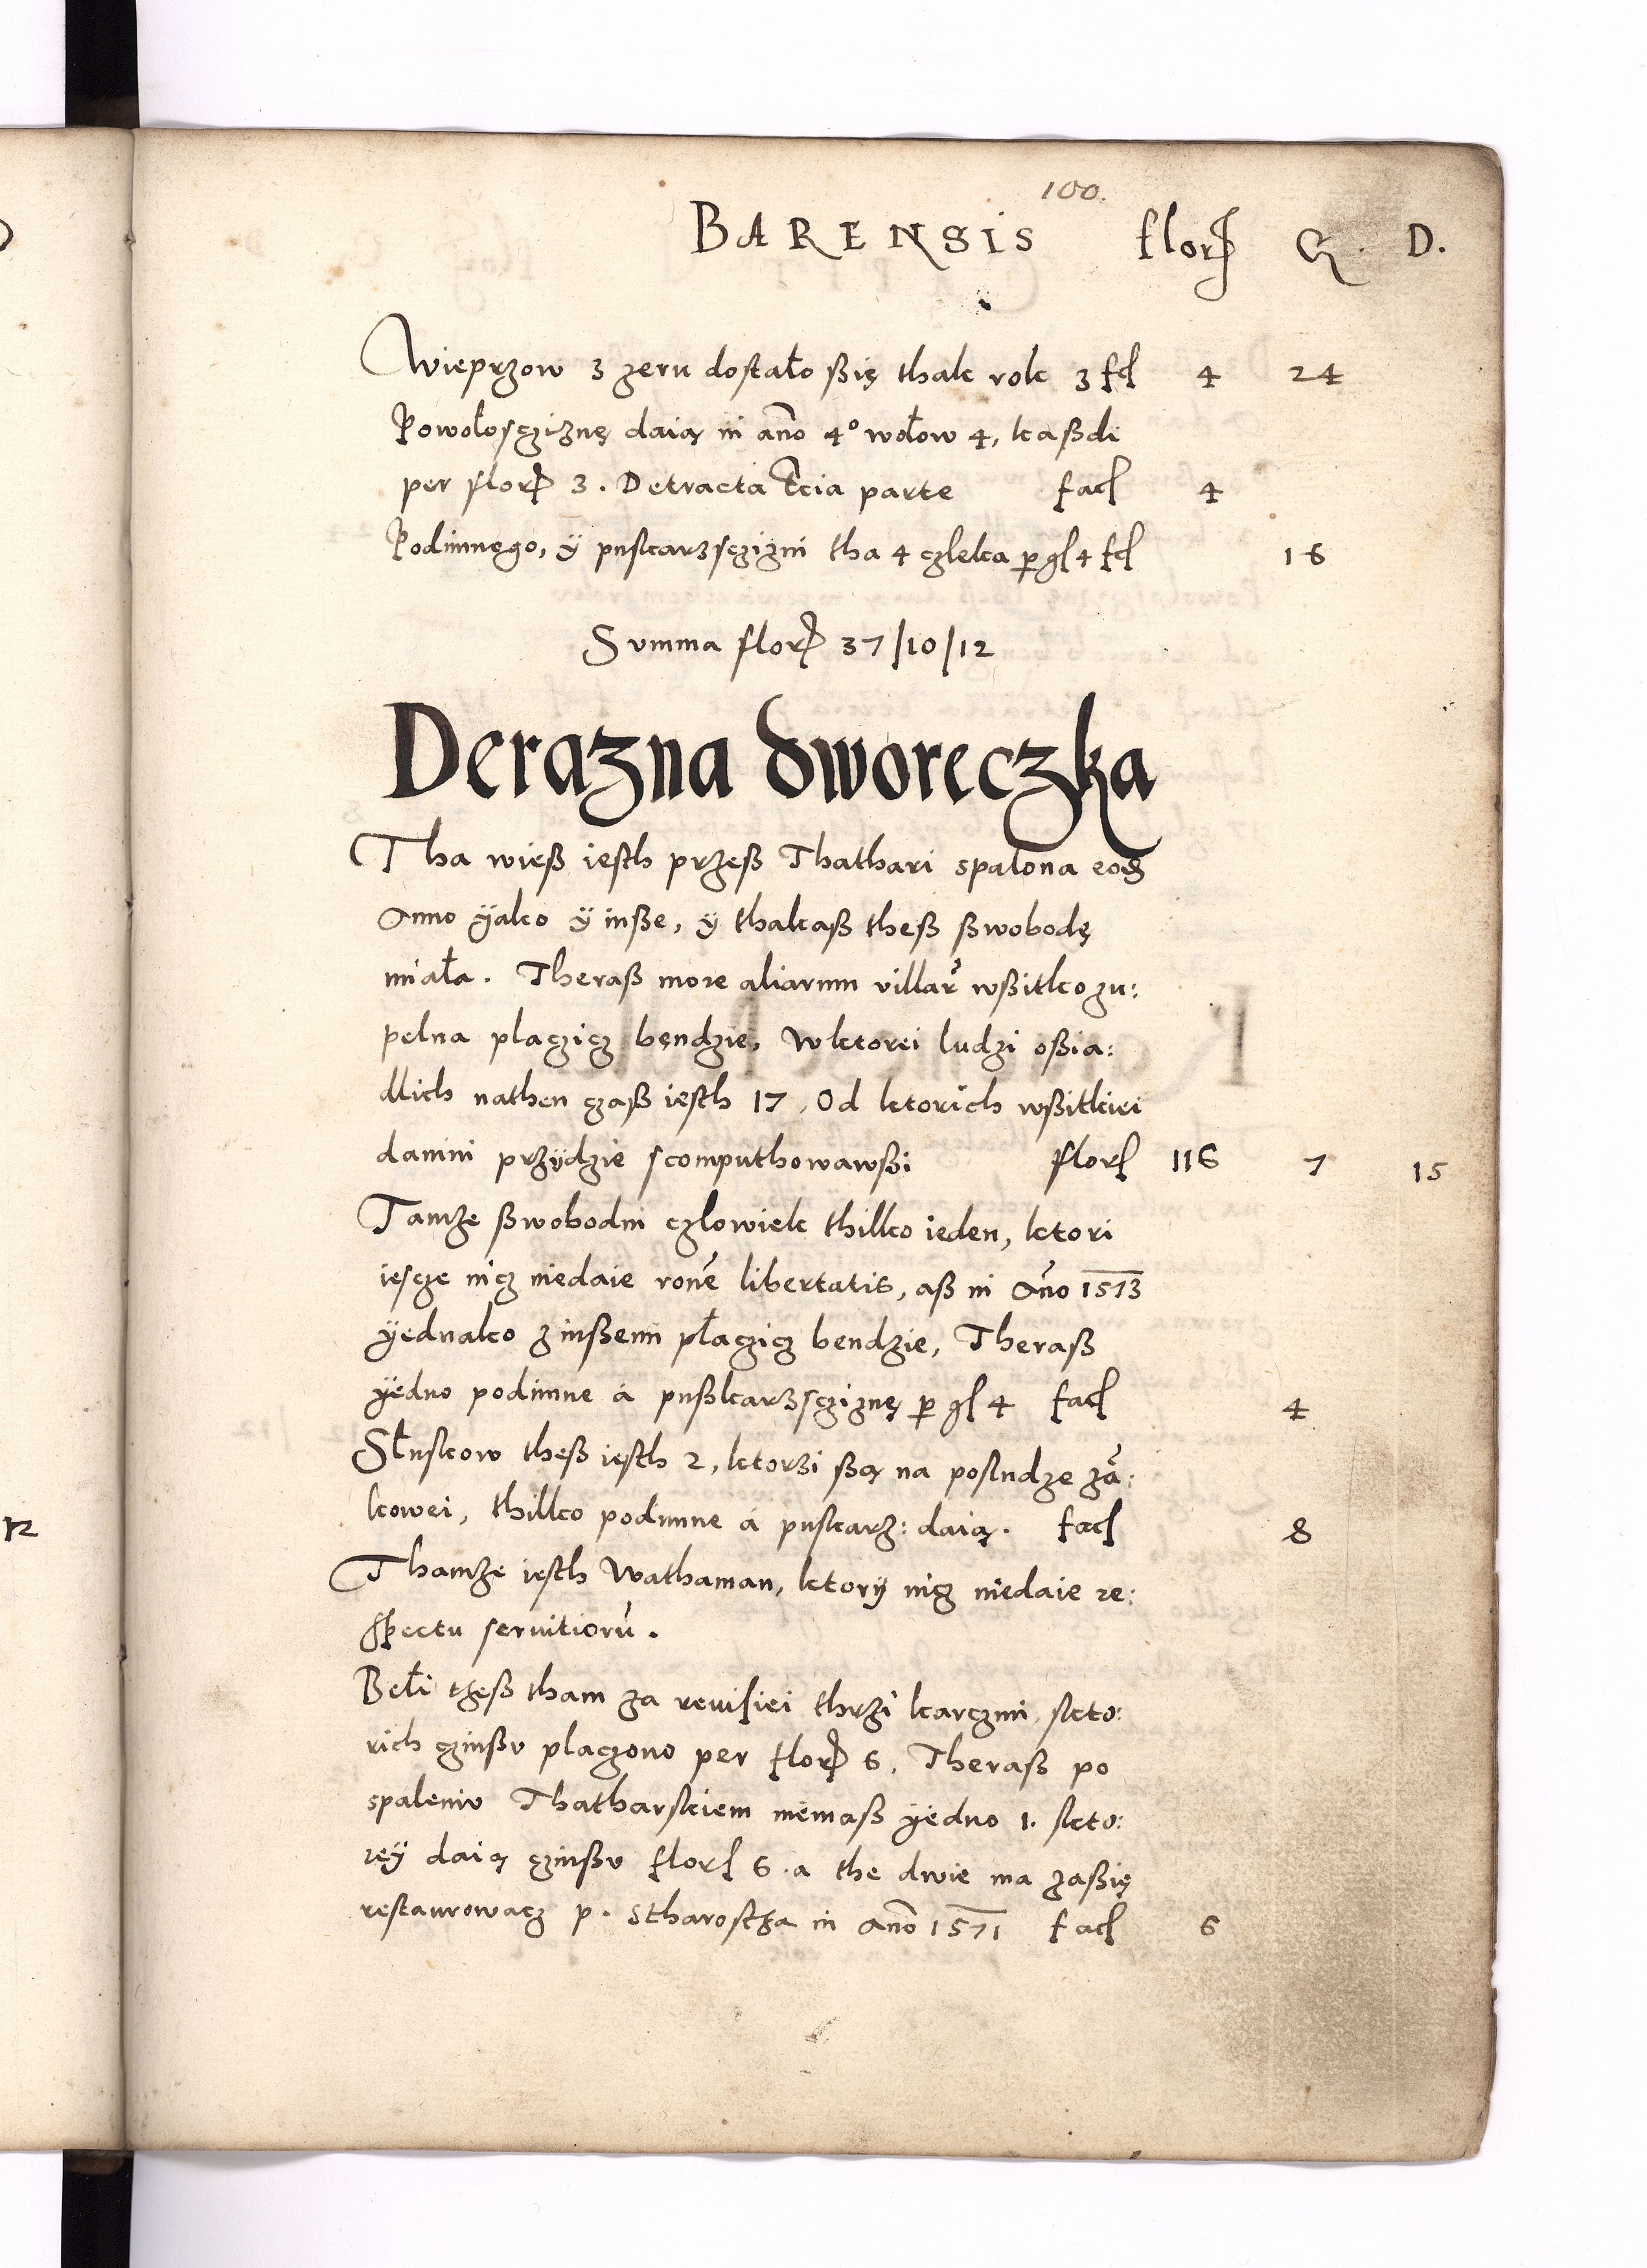 100.
BARENSIS flor G. D.
Wieprzow 3 zeru dostało ßię thak rok 3 fcl 4 24
Powołoscziznę daią in año 4° wołow 4, kaßdi
per flor 3. Detracta tcia parte facl 4
Podimnego, ÿ puskarzsczizni tha 4 czleka p gl 4 fcl 16
Summa flor 37/10/12
Derazna dworeczka
Tha wieß iesth przeß Thathari spalona eod
Anno ÿako ÿ inße, ÿ thakaß theß ßwobodę
miała. Theraß more aliarum villar wßitko zu:
pelna placzicz bendzie, Wktorei ludzi oßia:
dlich nathen czaß iesth 17, Od ktorich wßitkiei
danini przÿdzie scomputhowawßi florl 116 7 15
Tamże ßwobodni czlowiek thilko ieden, ktori
iescze nicz niedaie rone libertatis, aß in Año 1573
ÿednako zinßemi płaczicz bendzie, Theraß
ÿedno podimne á pußkarzscziznę p gl 4 facl 4
Słuskow theß iesth 2, ktorzi ßą na posludze zã:
kowei, thilko podimne á puskarz: daią. facl 8
Thamże iesth Wathaman, ktorÿ nicz niedaie re:
spectu seruitiorũ.
Beli tzeß tham za reuisiei thrzi karczmi, skto:
rich czinßu placzono per flor 6, Theraß po
spaleniu Thatharskiem niemaß ÿedno 1. skto:
reÿ daią czinßu florl 6. a the dwie ma zaßię
restaurowacz p. Stharostha in Año 1571 facl 6